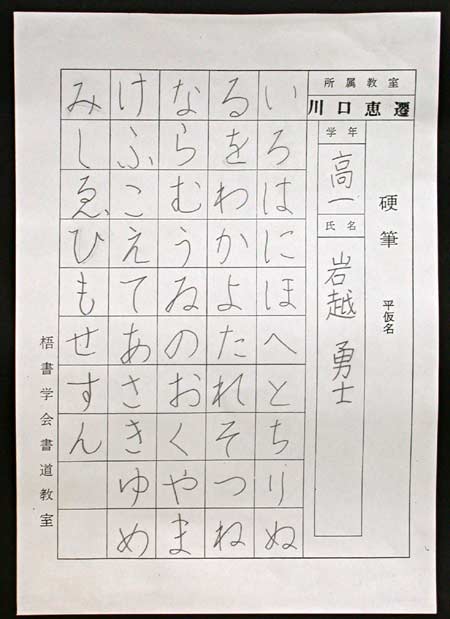 硬筆 平仮名
所属教室
川口恵遷
学年
高一
氏名
岩越 勇士
いろはにほへとちりぬ
るをわかよたれそつね
ならむうゐのおくやま
けふこえてあさきゆめ
みしゑひもせすん
梧書学会書道教室